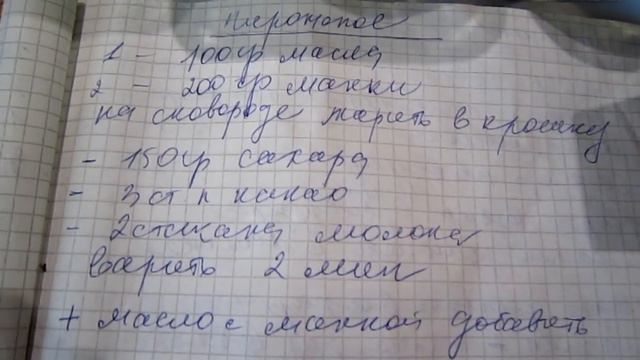 пирожоное
1 - 100гр масла
2 - 200гр манки
на сковороде жарить в крошку
- 150гр сахара
- 3 ст л какао
- 2 стакана молока
Варить 2 мин
+ масло с манкой добавить